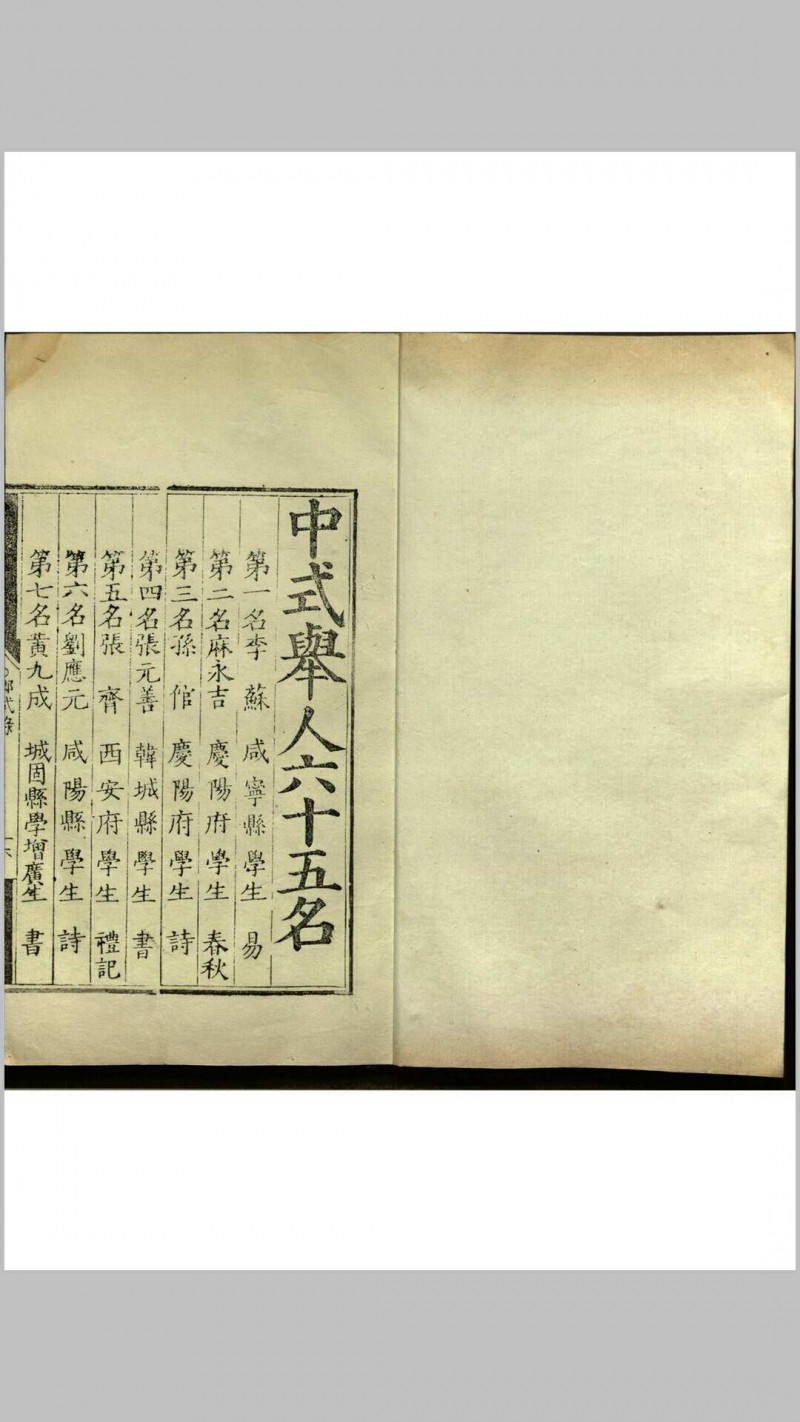 中式舉人六十五名
第一名李蘇 咸寧縣學生 易
第二名麻永吉 慶陽府學生 春秋
第三名孫倌 慶陽府學生 詩
第四名張元善 韓城縣學生 書
第五名張齊 西安府學生 禮記
第六名劉應元 咸陽縣學生 詩
第七名黃九成 城固縣學增廣生 書
式錄